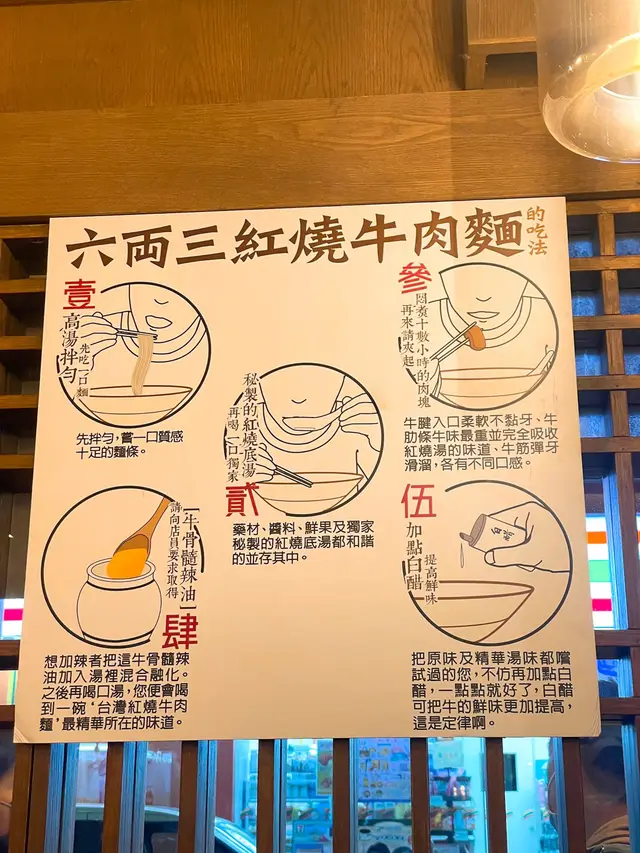 六両三紅燒牛肉麵
的吃法
壹
高湯拌勻
先吃一口麵
先拌勻，嘗一口質感
十足的麵條。
貳
秘製的紅燒底湯
再喝一口獨家
藥材、醬料、鮮果及獨家
秘製的紅燒底湯都和諧
的並存其中。
參
悶煮十數小時的肉塊
再來請夾起
牛腱入口柔軟不黏牙、牛
肋條牛味最重並完全吸收
紅燒湯的味道、牛筋彈牙
滑溜，各有不同口感。
肆
［牛骨髓辣油］
請向店員要求取得
想加辣者把這牛骨髓辣
油加入湯裡混合融化。
之後再喝口湯，您便會喝
到一碗‘台灣紅燒牛肉
麵’最精華所在的味道。
伍
加點白醋
提高鮮味
白醋
把原味及精華湯味都嚐
試過的您，不仿再加點白
醋，一點點就好了，白醋
可把牛的鮮味更加提高，
這是定律啊。